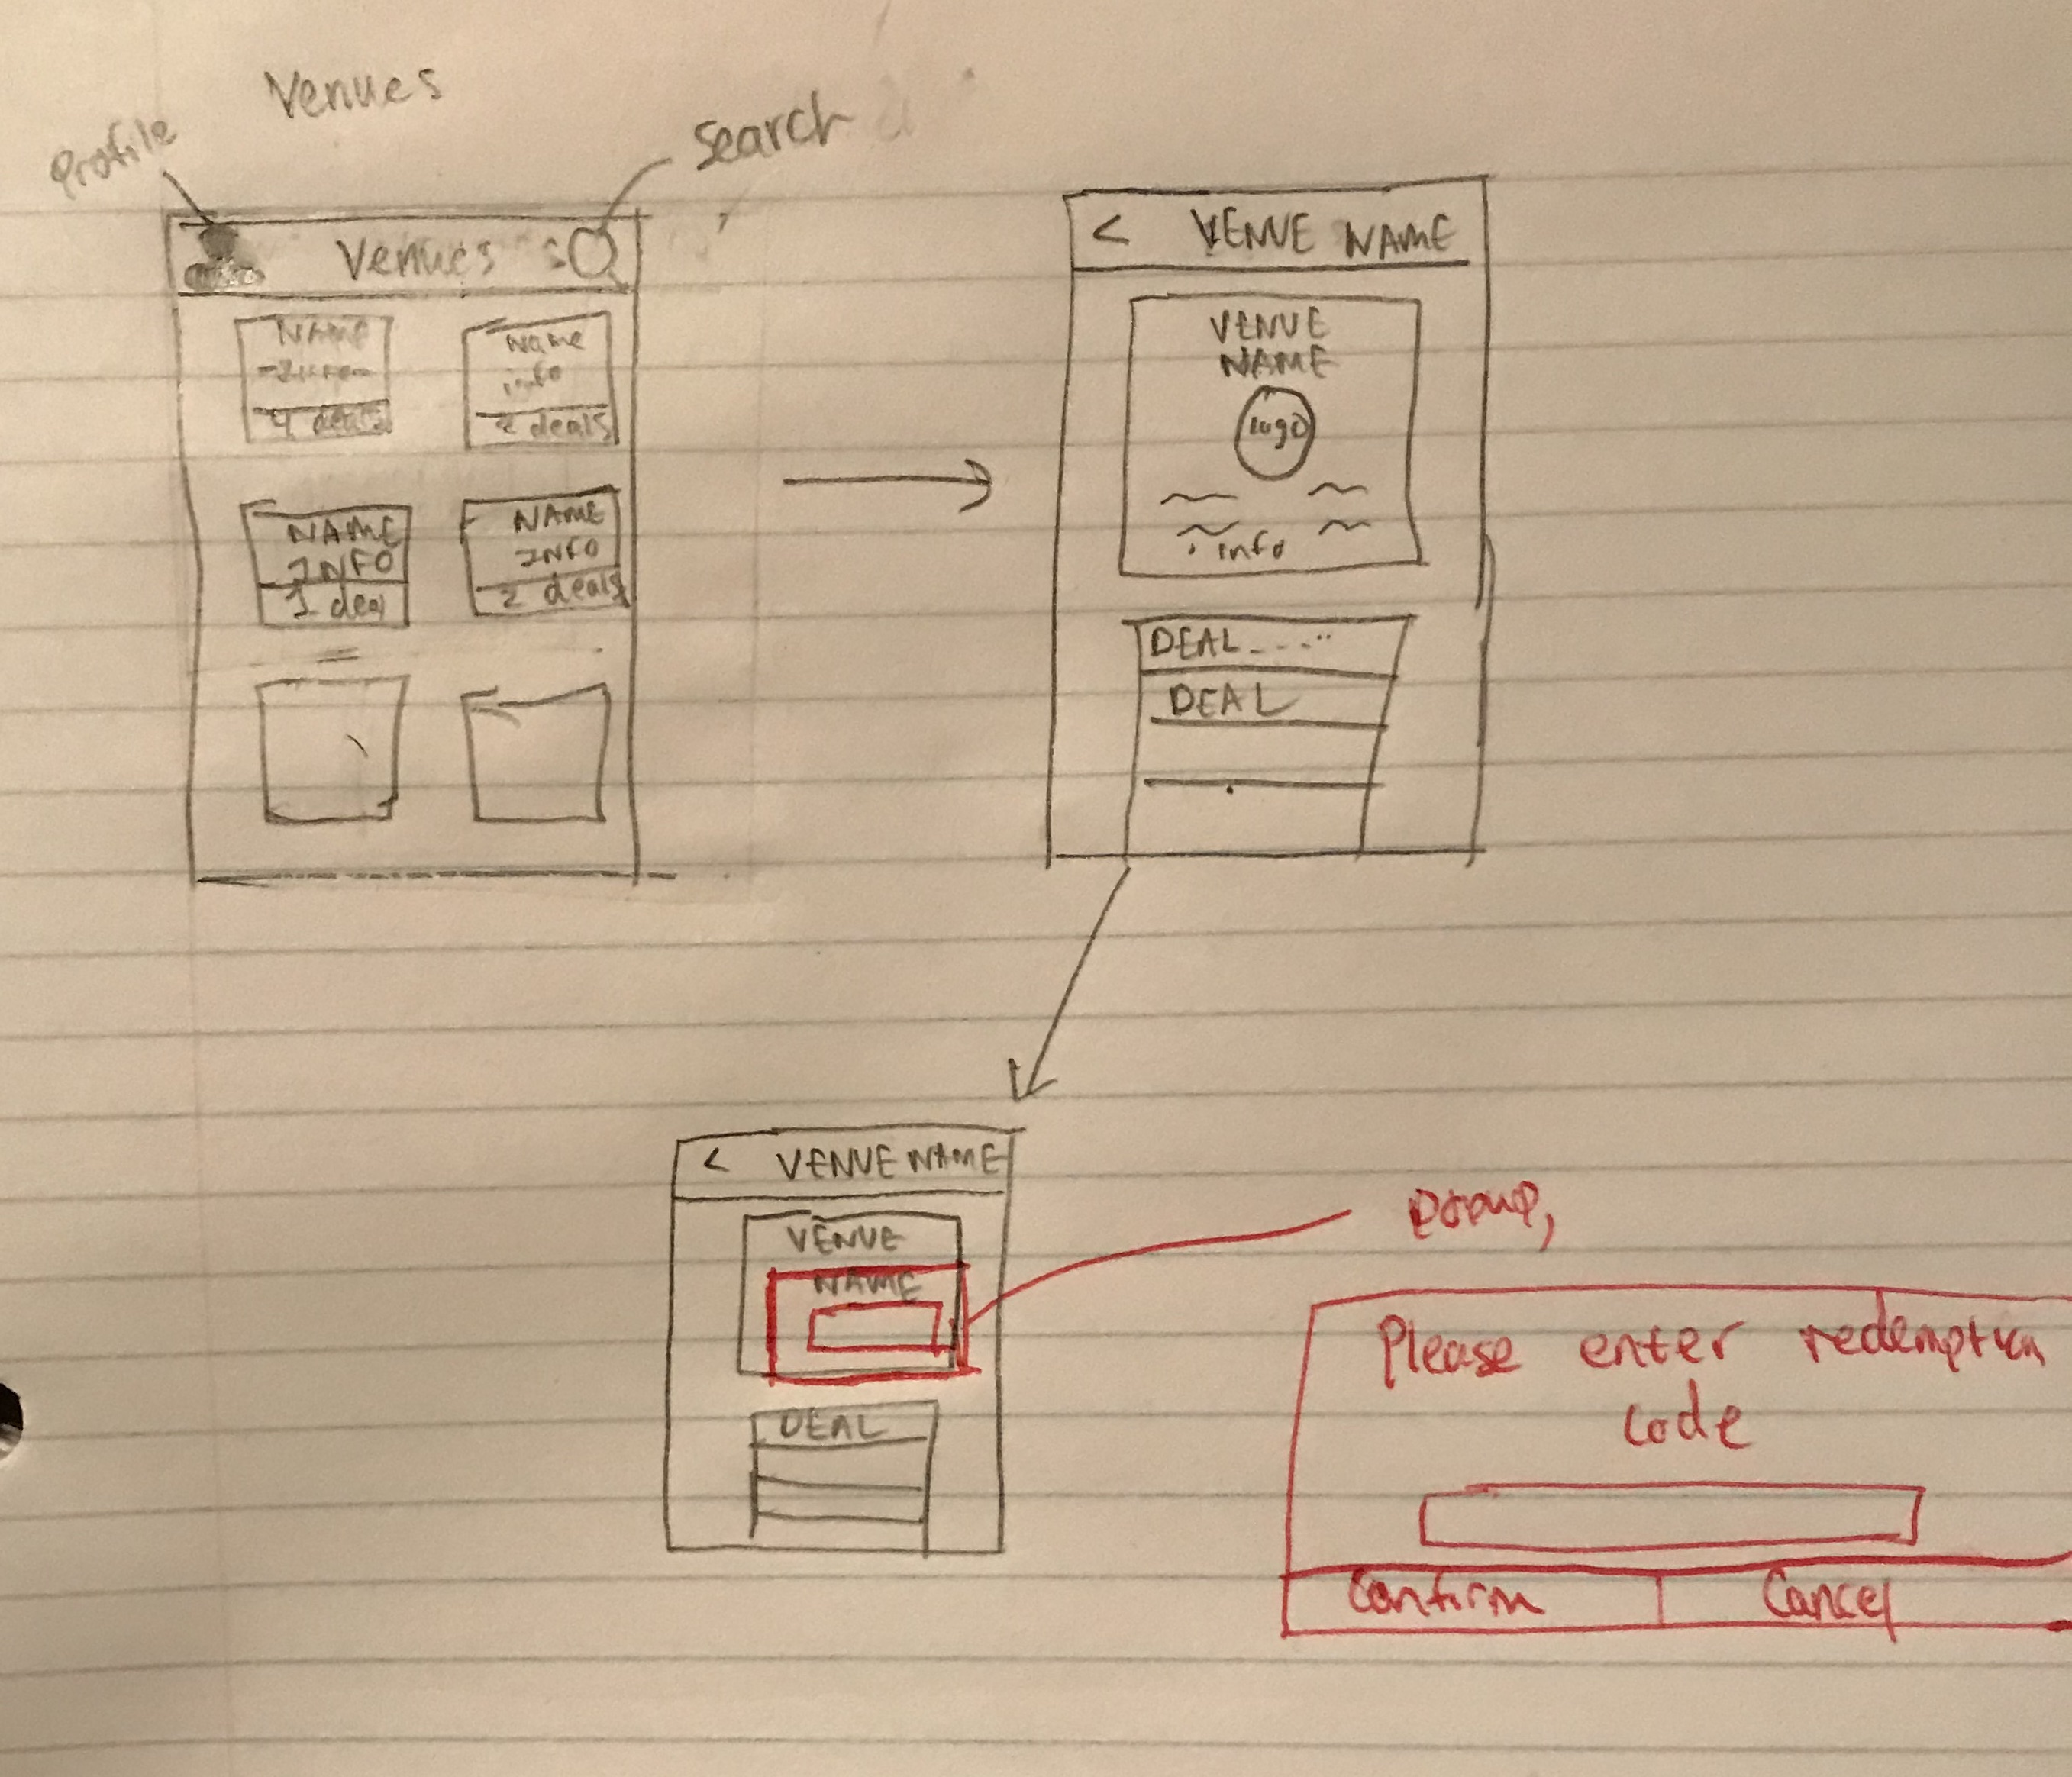 Venues
Profile
Search
Venues
NAME
4 deals
Name
info
deals
NAME
INFO
1 deal
NAME
INFO
2 deals
< VENUE NAME
VENUE
NAME
logo
info
DEAL.......
DEAL
< VENUE NAME
VENUE
NAME
DEAL
Popup,
Please enter redemption
code
Confirm
Cancel